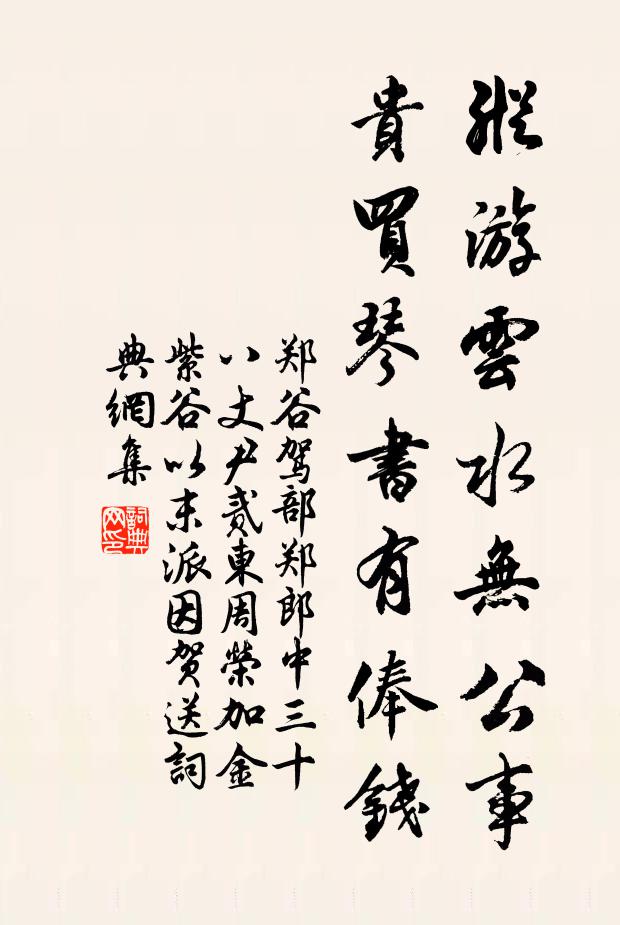 縱游雲水無公事
貴買琴書有俸錢
郑谷驾部郑郎中三十
八丈尹贰東周榮加金
紫谷以末派因贺送詞
典網集
詞典
网印